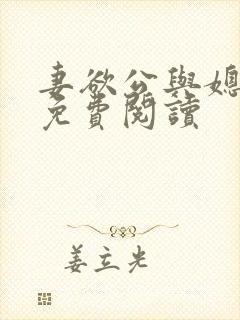 妻欲公與媳
免費閱讀
姜立光